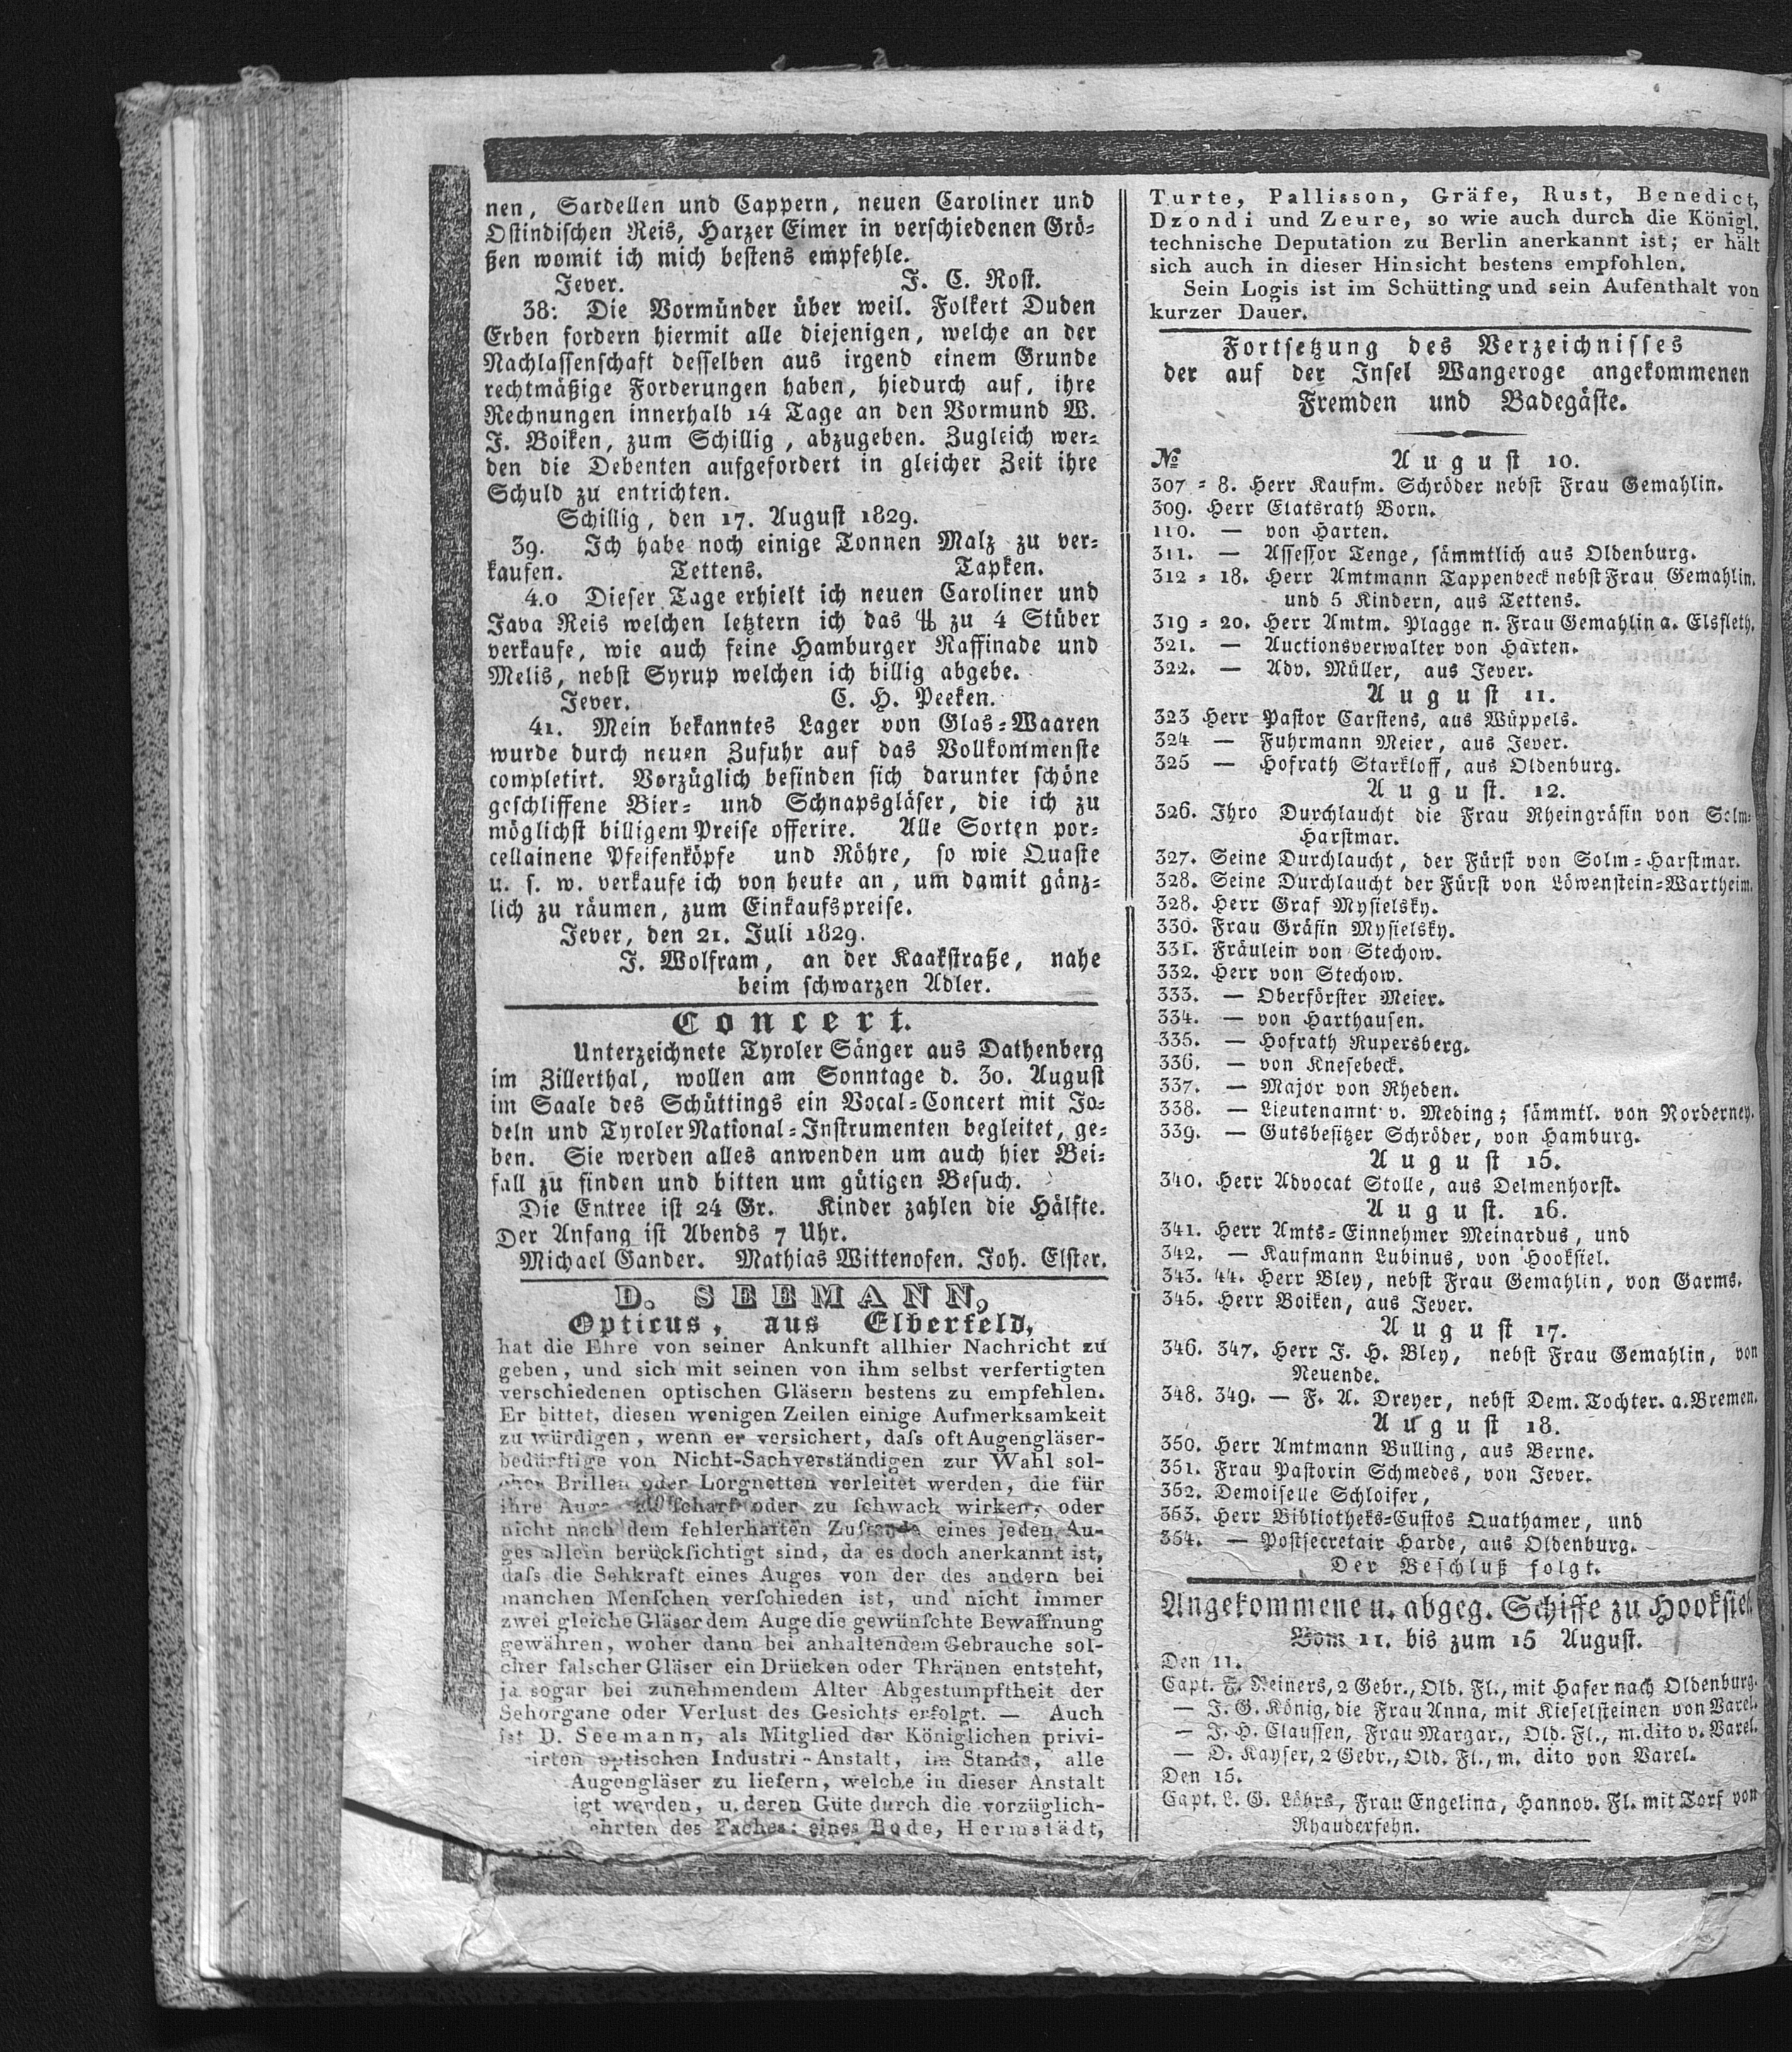 nen, Sardellen und Cappern, neuen Caroliner und
Ostindischen Reis, Harzer Eimer in verschiedenen Grö-
ßen womit ich mich bestens empfehle.
Jever. J. C. Rost.
38: Die Vormünder über weil. Folkert Duden
Erben fordern hiermit alle diejenigen, welche an der
Nachlassenschaft desselben aus irgend einem Grunde
rechtmäßige Forderungen haben, hiedurch auf, ihre
Rechnungen innerhalb 14 Tage an den Vormund W.
J. Boiken, zum Schillig, abzugeben. Zugleich wer-
den die Debenten aufgefordert in gleicher Zeit ihre
Schuld zu entrichten.
Schillig, den 17. August 1829.
39. Ich habe noch einige Tonnen Malz zu ver-
kaufen. Tettens. Tapken.
4.0 Dieser Tage erhielt ich neuen Caroliner und
Java Reis welchen letztern ich das ℔ zu 4 Stüber
verkaufe, wie auch feine Hamburger Raffinade und
Melis, nebst Syrup welchen ich billig abgebe.
Jever. C. H. Peeken.
41. Mein bekanntes Lager von Glas-Waaren
wurde durch neuen Zufuhr auf das Vollkommenste
completirt. Vorzüglich befinden sich darunter schöne
geschliffene Bier- und Schnapsgläser, die ich zu
möglichst billigem Preise offerire. Alle Sorten por-
cellainene Pfeifenköpfe und Röhre, so wie Quaste
u. s. w. verkaufe ich von heute an, um damit gänz-
lich zu räumen, zum Einkaufspreise.
Jever, den 21. Juli 1829.
J. Wolfram, an der Kaakstraße, nahe
beim schwarzen Adler.
Concert.
Unterzeichnete Tyroler Sänger aus Dathenberg
im Zillerthal, wollen am Sonntage d. 30. August
im Saale des Schüttings ein Vocal-Concert mit Jo-
deln und Tyroler National-Instrumenten begleitet, ge-
ben. Sie werden alles anwenden um auch hier Bei-
fall zu finden und bitten um gütigen Besuch.
Die Entree ist 24 Gr. Kinder zahlen die Hälfte.
Der Anfang ist Abends 7 Uhr.
Michael Gander. Mathias Wittenofen. Joh. Elster.
D. SEEMANN,
Opticus, aus Elberfeld,
hat die Ehre von seiner Ankunft allhier Nachricht zu
geben, und sich mit seinen von ihm selbst verfertigten
verschiedenen optischen Gläsern bestens zu empfehlen.
Er bittet, diesen wenigen Zeilen einige Aufmerksamkeit
zu würdigen, wenn er versichert, daſs oft Augengläser-
bedürftige von Nicht-Sachverständigen zur Wahl sol-
cher Brillen oder Lorgnetten verleitet werden, die für
ihre Auge ſcharf oder zu ſchwach wirken, oder
nicht nach dem fehlerhaften Zuſtande eines jeden Au-
ges allein berückſichtigt sind, da es doch anerkannt ist,
daſs die Sehkraft eines Auges von der des andern bei
manchen Menſchen verſchieden ist, und nicht immer
zwei gleiche Gläser dem Auge die gewünſchte Bewaffnung
gewähren, woher dann bei anhaltendem Gebrauche sol-
cher falscher Gläser ein Drücken oder Thränen entsteht,
ja sogar bei zunehmendem Alter Abgestumpftheit der
Sehorgane oder Verlust des Gesichts erfolgt. — Auch
ist D. Seemann, als Mitglied der Königlichen privi-
irten optischen Industri-Anstalt, im Stande, alle
Augengläser zu liefern, welche in dieser Anstalt
igt werden, u. deren Güte durch die vorzüglich-
ehrten des Faches: eines Bode, Hermstädt,
Turte, Pallisson, Gräfe, Rust, Benedict,
Dzondi und Zeure, so wie auch durch die Königl.
technische Deputation zu Berlin anerkannt ist; er hält
sich auch in dieser Hinsicht bestens empfohlen.
Sein Logis ist im Schütting und sein Aufenthalt von
kurzer Dauer.
Fortsetzung des Verzeichnisses
der auf der Insel Wangeroge angekommenen
Fremden und Badegäste.
№ August 10.
307 = 8. Herr Kaufm. Schröder nebst Frau Gemahlin.
309. Herr Elatsrath Born.
110. — von Harten.
311. — Assessor Tenge, sämmtlich aus Oldenburg.
312 = 18. Herr Amtmann Tappenbeck nebst Frau Gemahlin.
und 5 Kindern, aus Tettens.
319 = 20. Herr Amtm. Plagge n. Frau Gemahlin a. Elsfleth.
321. — Auctionsverwalter von Harten.
322. — Adv. Müller, aus Jever.
August 11.
323 Herr Pastor Carstens, aus Wüppels.
324 — Fuhrmann Meier, aus Jever.
325 — Hofrath Starkloff, aus Oldenburg.
August. 12.
326. Ihro Durchlaucht die Frau Rheingräfin von Solm-
Harstmar.
327. Seine Durchlaucht, der Fürst von Solm-Harstmar.
328. Seine Durchlaucht der Fürst von Löwenstein-Wartheim.
328. Herr Graf Mysielsky.
330. Frau Gräfin Mysielsky.
331. Fräulein von Stechow.
332. Herr von Stechow.
333. — Oberförster Meier.
334. — von Harthausen.
335. — Hofrath Rupersberg.
336. — von Knesebeck.
337. — Major von Rheden.
338. — Lieutenannt v. Meding; sämmtl. von Norderney.
339. — Gutsbesitzer Schröder, von Hamburg.
August 15.
340. Herr Advocat Stolle, aus Delmenhorst.
August. 16.
341. Herr Amts-Einnehmer Meinardus, und
342. — Kaufmann Lubinus, von Hooksiel.
343. 44. Herr Bley, nebst Frau Gemahlin, von Garms.
345. Herr Boiken, aus Jever.
August 17.
346. 347. Herr J. H. Bley, nebst Frau Gemahlin, von
Neuende.
348. 349. — F. A. Dreyer, nebst Dem. Tochter. a. Bremen.
August 18.
350. Herr Amtmann Bulling, aus Berne.
351. Frau Pastorin Schmedes, von Jever.
352. Demoiselle Schloifer,
353. Herr Bibliotheks-Custos Quathamer, und
354. — Postsecretair Harde, aus Oldenburg.
Der Beschluß folgt.
Angekommene u. abgeg. Schiffe zu Hooksiel.
Vom 11. bis zum 15 August.
Den 11.
Capt. F. Reiners, 2 Gebr., Old. Fl., mit Hafer nach Oldenburg.
— J. G. König, die Frau Anna, mit Kieselsteinen von Varel.
— J. H. Claussen, Frau Margar., Old. Fl., m. dito v. Varel.
— D. Kayser, 2 Gebr., Old. Fl., m. dito von Varel.
Den 15.
Capt. L. G. Löhrs, Frau Engelina, Hannov. Fl. mit Torf von
Rhauderfehn.